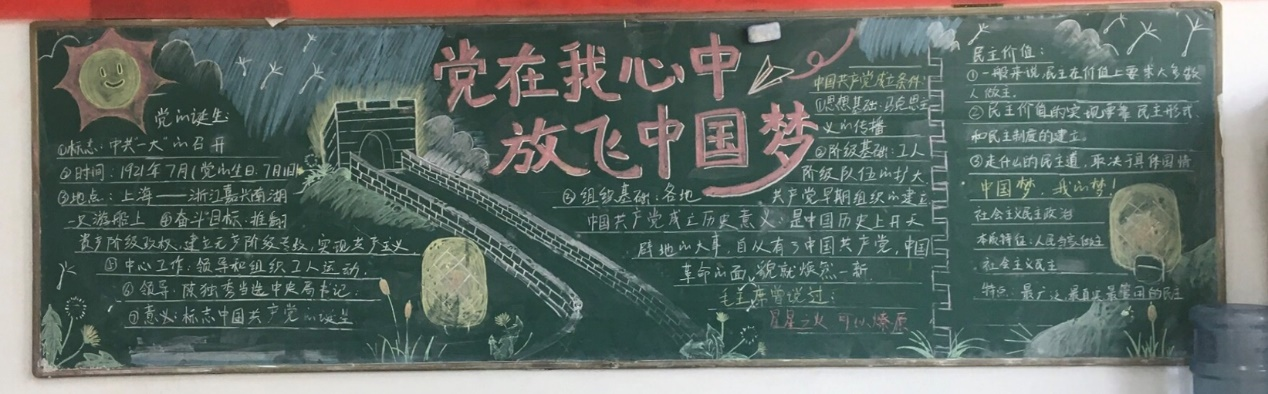 党在我心中
放飞中国梦
党的诞生:
①标志:中共一大的召开
②时间:1921年7月(党的生日:7月1日)
③地点:上海——浙江嘉兴南湖
一史游船上 ④奋斗目标:推翻
资产阶级政权,建立无产阶级专政,实现共产主义
⑤中心工作:领导和组织工人运动.
⑥领导:陈独秀当选中央局书记.
⑦意义:标志中国共产党的诞生
中国共产党成立条件:
①思想基础:马克思主
义的传播
②阶级基础:工人
阶级队伍的扩大
③组织基础:各地 共产党早期组织的建立
中国共产党成立历史意义:是中国历史上开天
辟地的大事,自从有了中国共产党,中国
革命的面貌就焕然一新.
毛主席曾说过:
星星之火 可以燎原
民主价值:
①一般来说,民主在价值上要求大多数
人做主.
②民主价值的实现要靠民主形式
和民主制度的建立.
③走什么的民主道,取决于具体国情
中国梦,我的梦!
社会主义民主政治
本质特征:人民当家做主
社会主义民主
特点:最广泛最真实最管用的民主